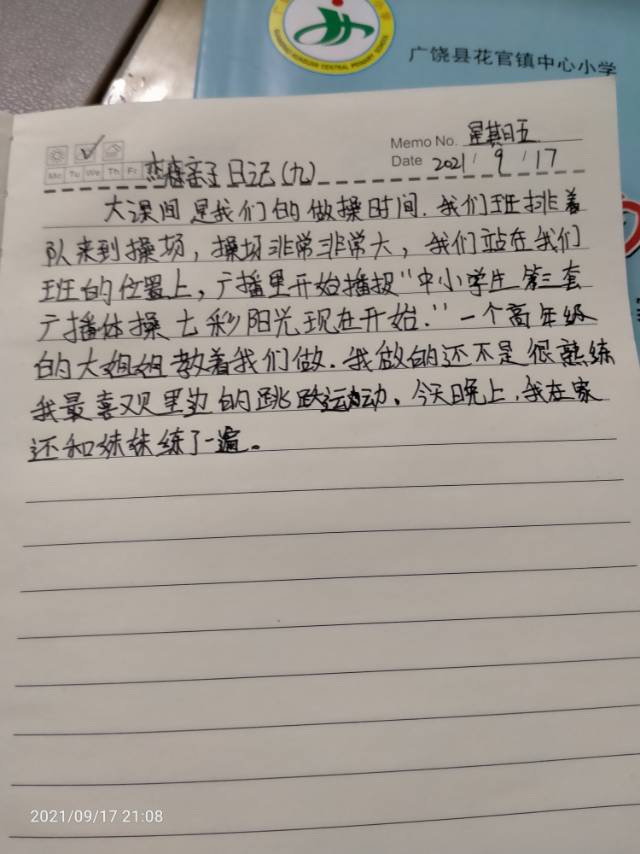 广饶县花官镇中心小学
Memo No. 星期五
Mo Tu We Th Fr
Date 2021/9/17
亲子日记(九)
大课间是我们的做操时间.我们班排着
队来到操场，操场非常非常大，我们站在我们
班的位置上，广播里开始播报“中小学生第三套
广播体操七彩阳光现在开始.”一个高年级
的大姐姐教着我们做.我做的还不是很熟练
我最喜欢里边的跳跃运动。今天晚上.我在家
还和妹妹练了一遍。
2021/09/17 21:08